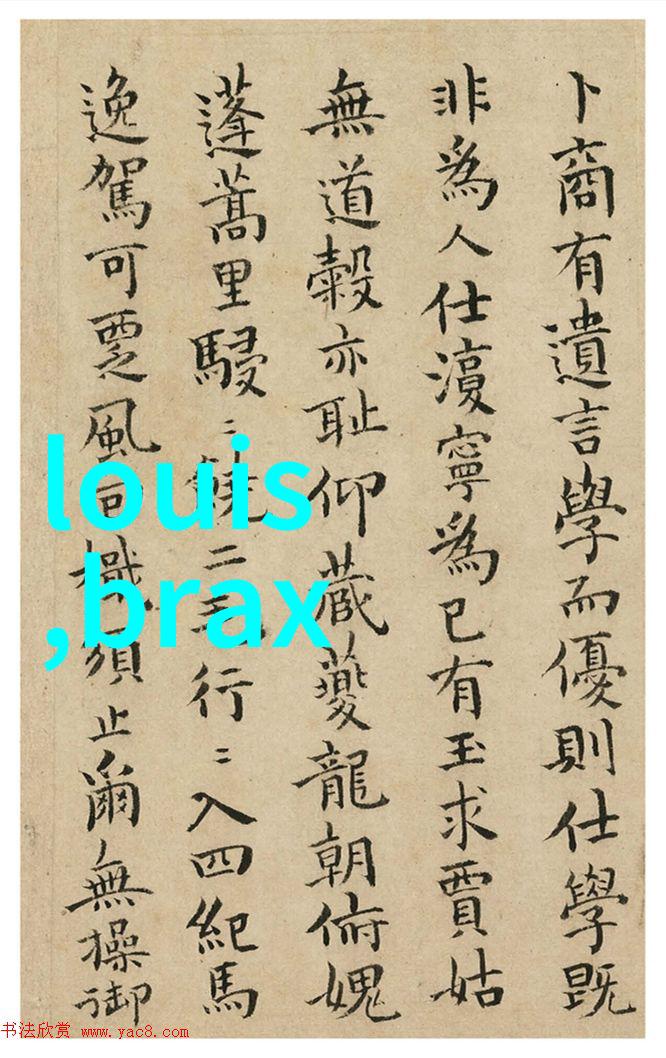 卜商有遺言學而優則仕學既
非爲人仕寧爲已有玉求賈姑
無道榖亦耻仰蔵夔龍朝俯媿
蓬蒿里駸二二行二入四紀馬
逸駕可覂風須止爾無操御
louis
,brax
书法欣赏 www.yac8.com